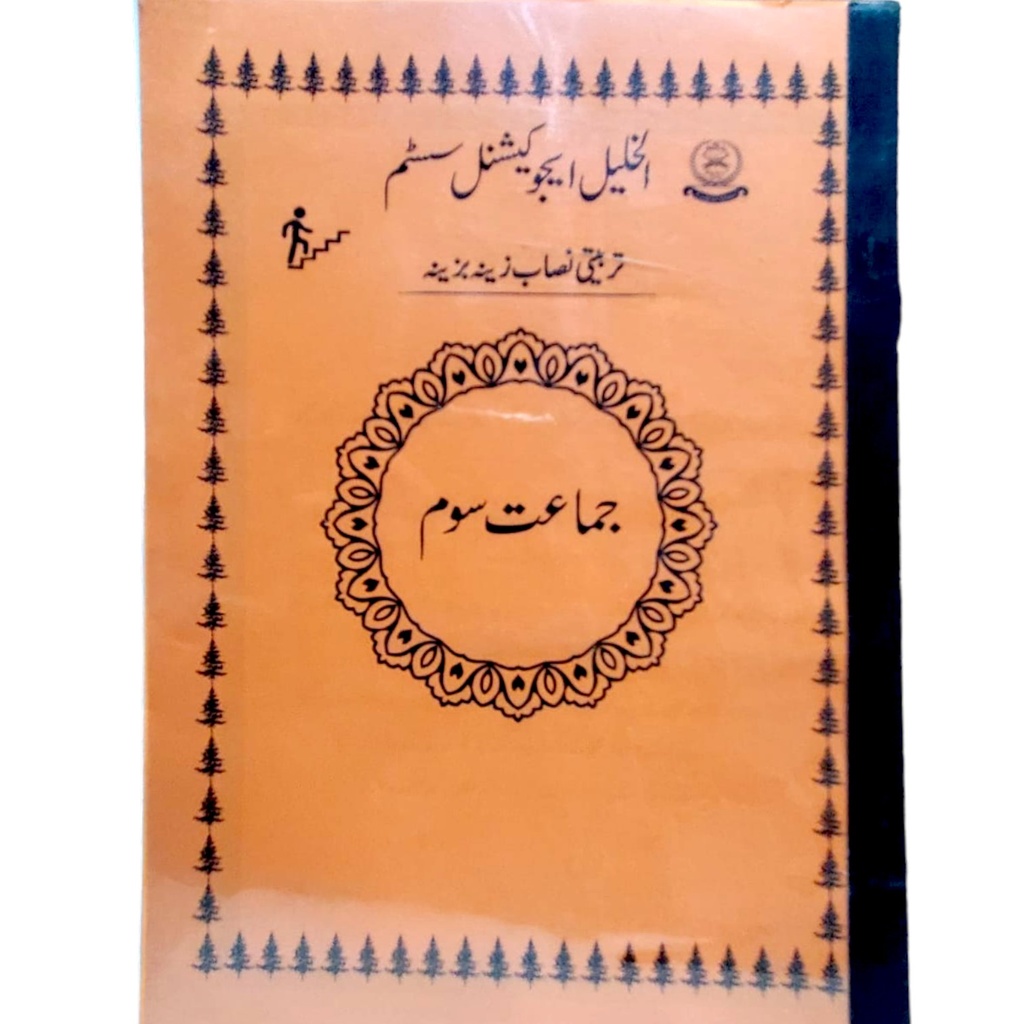 الخلیل ایجوکیشنل سسٹم
تربیتی نصاب زینہ بزینہ
جماعت سوم